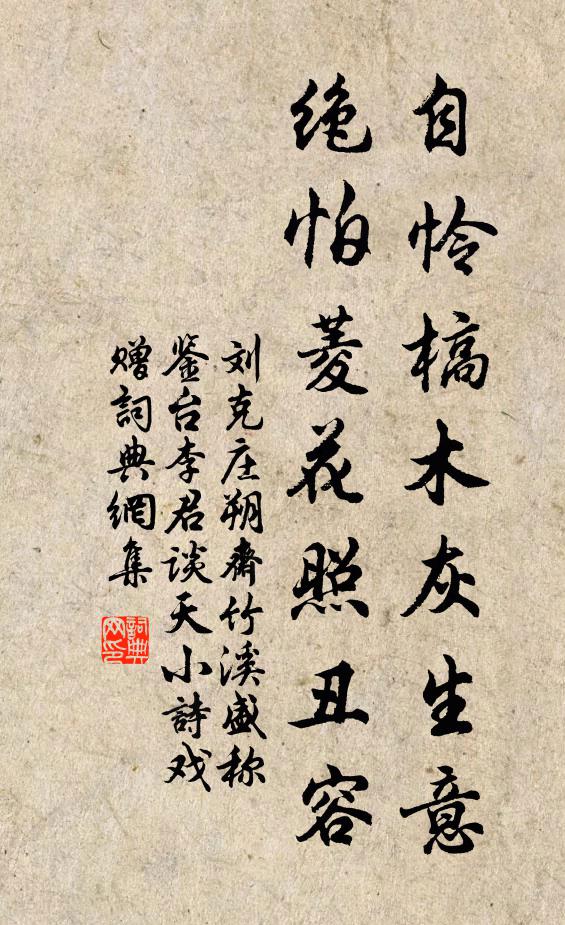 自怜槁木灰生意
绝怕菱花照丑容
刘克庄朔斋竹溪盛称
鉴台李君谈天小詩戏
赠詞典網集
詞典网印